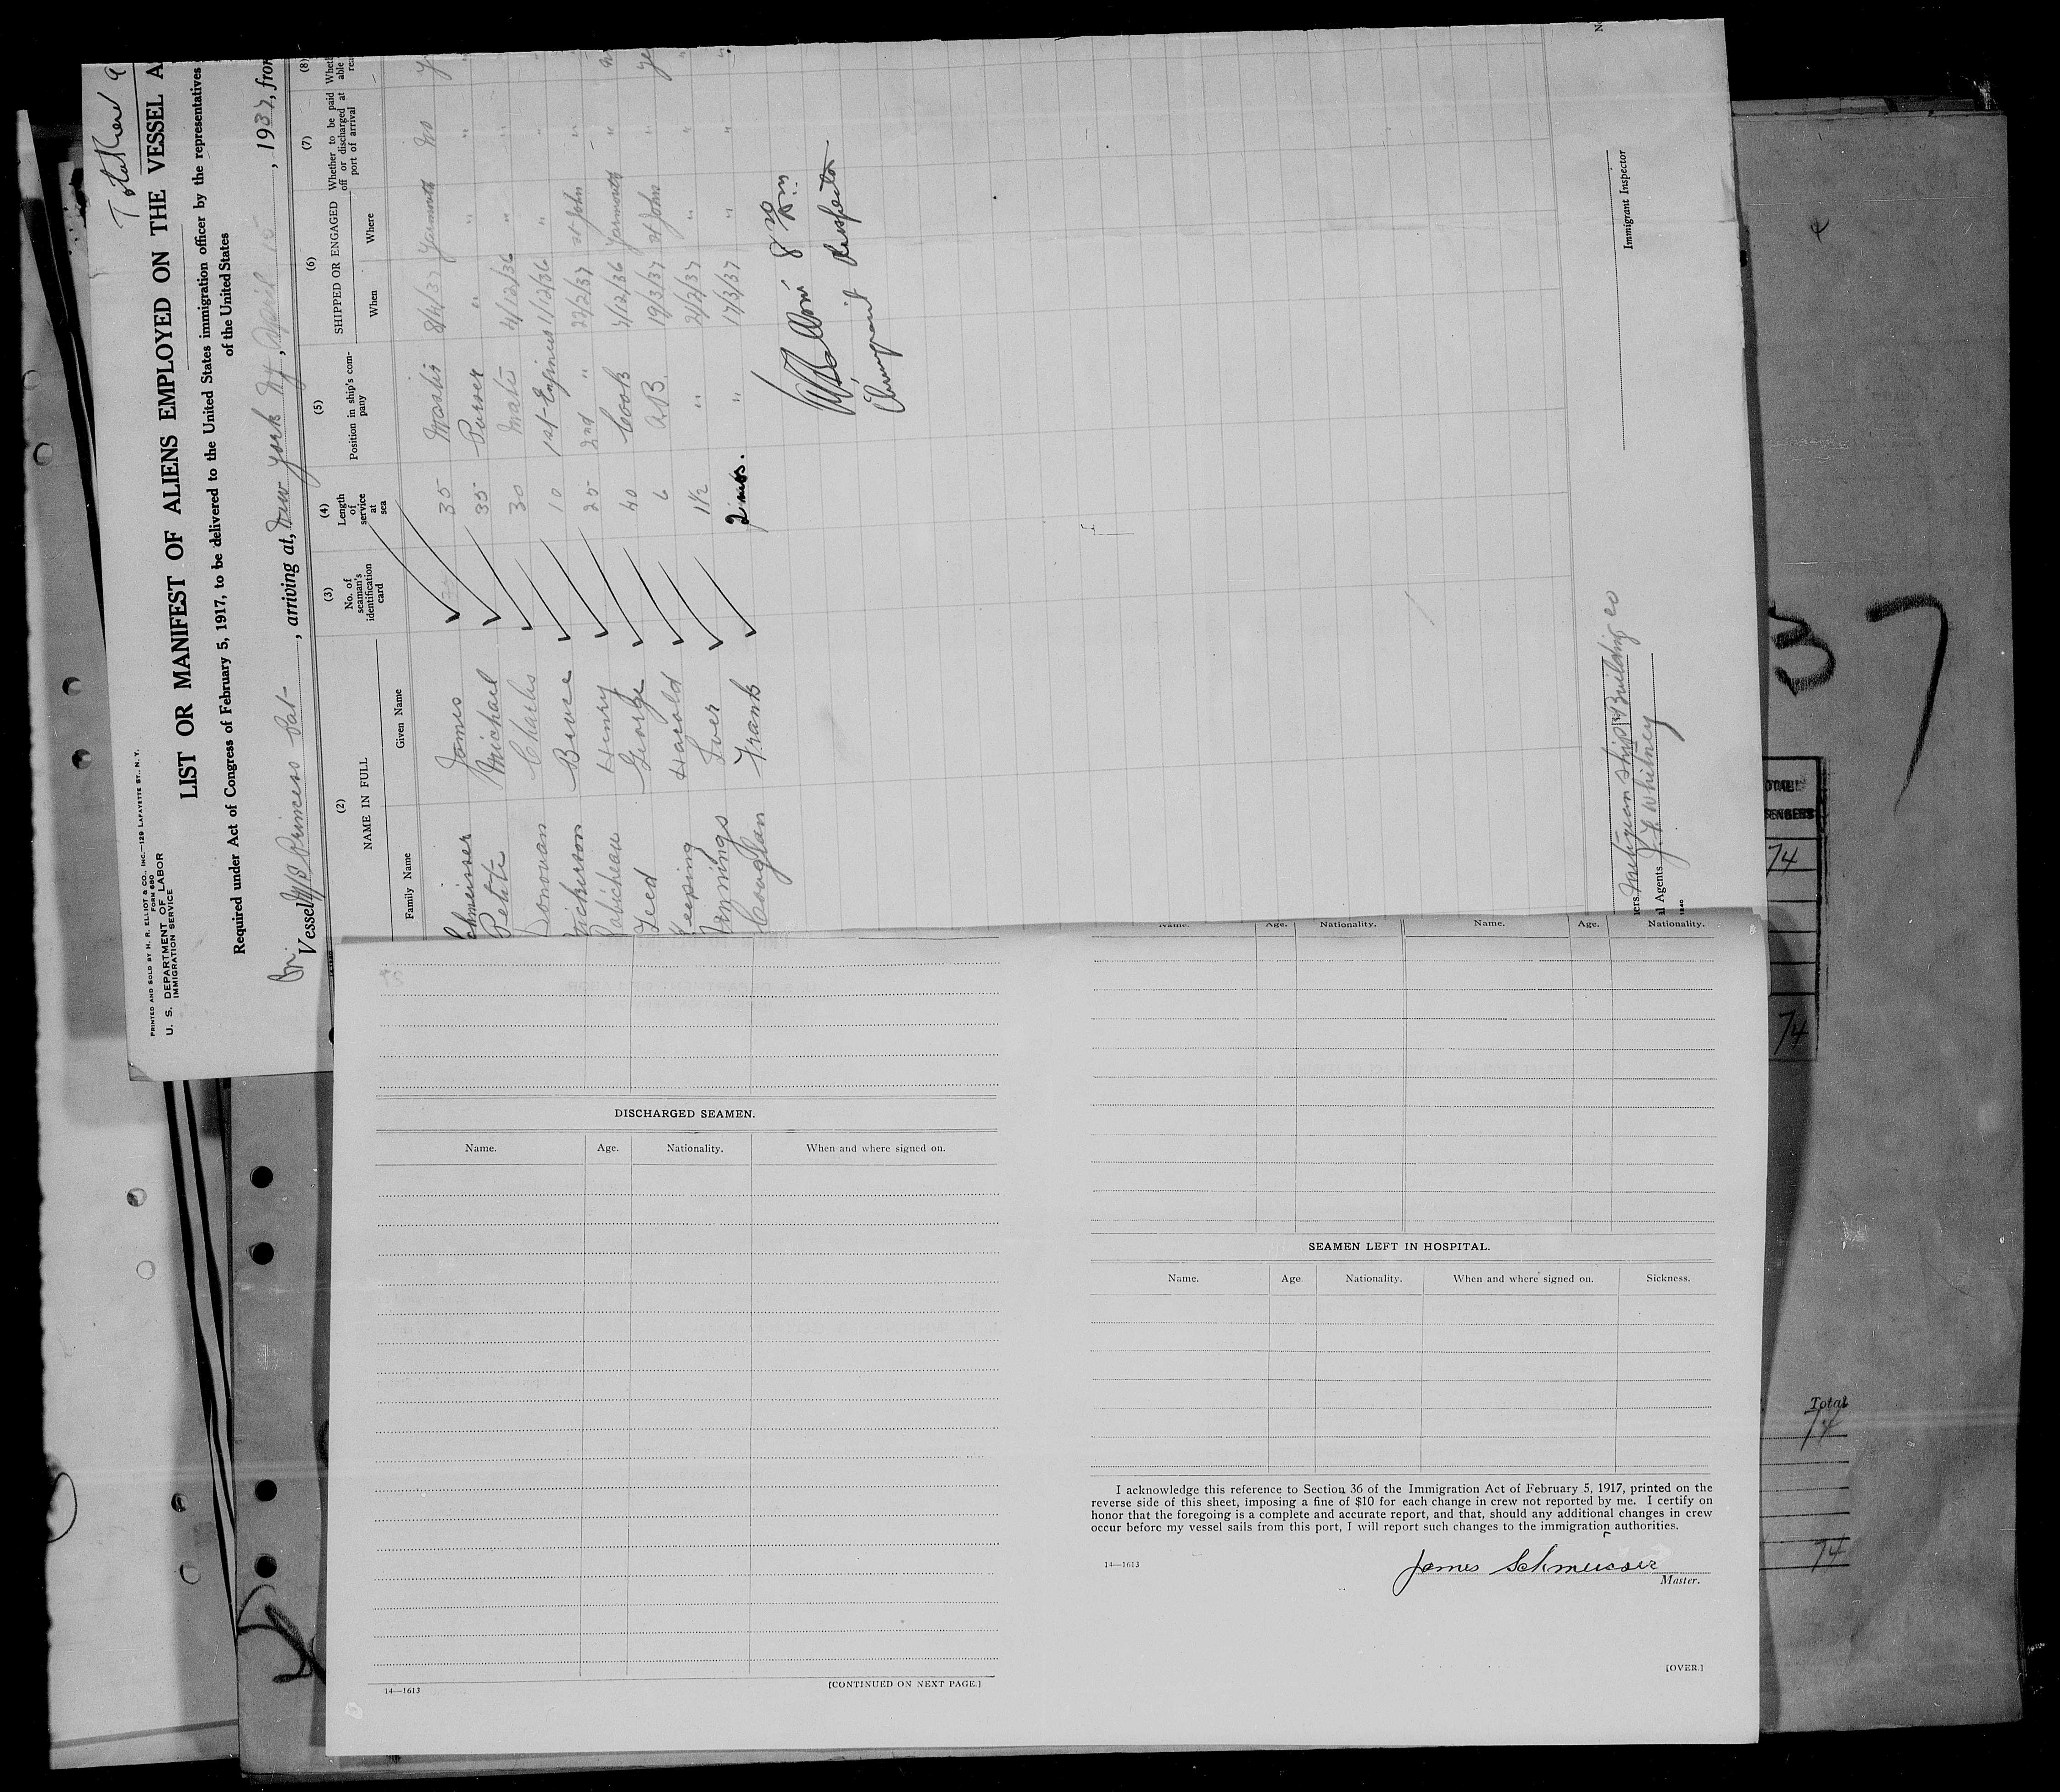 Total Crew 9
PRINTED AND SOLD BY H. R. ELLIOT & CO., INC.—129 LAFAYETTE ST., N. Y.
FORM 680
U. S. DEPARTMENT OF LABOR
IMMIGRATION SERVICE
LIST OR MANIFEST OF ALIENS EMPLOYED ON THE VESSEL A
Required under Act of Congress of February 5, 1917, to be delivered to the United States immigration officer by the representatives
of the United States
Br. Vessel M/S Princess Pat, arriving at, New York N.Y., April 15, 1937, from
(2) (3) (4) (5) (6) (7) (8)
NAME IN FULL
No. of seaman's identification card
Length of service at sea
Position in ship's company
SHIPPED OR ENGAGED
Whether to be paid off or discharged at port of arrival
Family Name Given Name When Where
James 35 Master 8/4/37 Yarmouth No
Petite Michael 35 Purser " " "
Donovan Charles 30 Mate 4/12/36 " "
Nickerson Bruce 10 1st Engineer 1/12/36 " "
Henry 25 2nd " 22/2/37 St John "
George 40 Cook 1/12/36 Yarmouth "
Keeping Harold 6 A.B. 19/3/37 St Johns "
Iver 1 1/2 " 2/2/37 " "
Cooglan Frank 2 mos. " 17/3/37 " "
8 20 am
Immigrant Inspector
Immigrant Inspector
Ship Building Co
l Agents J. F. Whitney
DISCHARGED SEAMEN.
Name. Age. Nationality. When and where signed on.
14—1613 [CONTINUED ON NEXT PAGE.]
Name. Age. Nationality. Name. Age. Nationality.
SEAMEN LEFT IN HOSPITAL.
Name. Age. Nationality. When and where signed on. Sickness.
I acknowledge this reference to Section 36 of the Immigration Act of February 5, 1917, printed on the
reverse side of this sheet, imposing a fine of $10 for each change in crew not reported by me. I certify on
honor that the foregoing is a complete and accurate report, and that, should any additional changes in crew
occur before my vessel sails from this port, I will report such changes to the immigration authorities.
14—1613
James Schmeisser
Master.
[OVER.]
7
74
74
Total
74
74